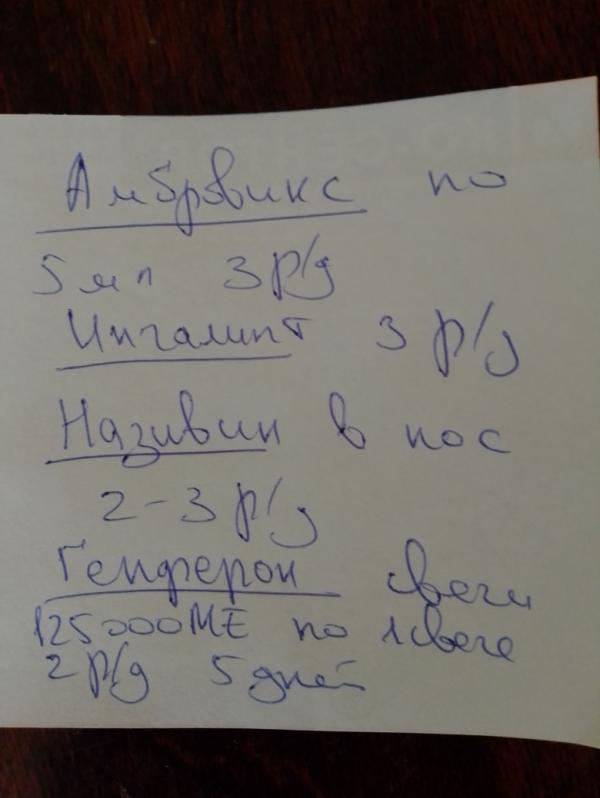 Амбровикс по
5 мл 3 р/д
Ингалипт 3 р/д
Називин в нос
2-3 р/д
Генферон свечи
125000МЕ по 1 свече
2 р/д 5 дней